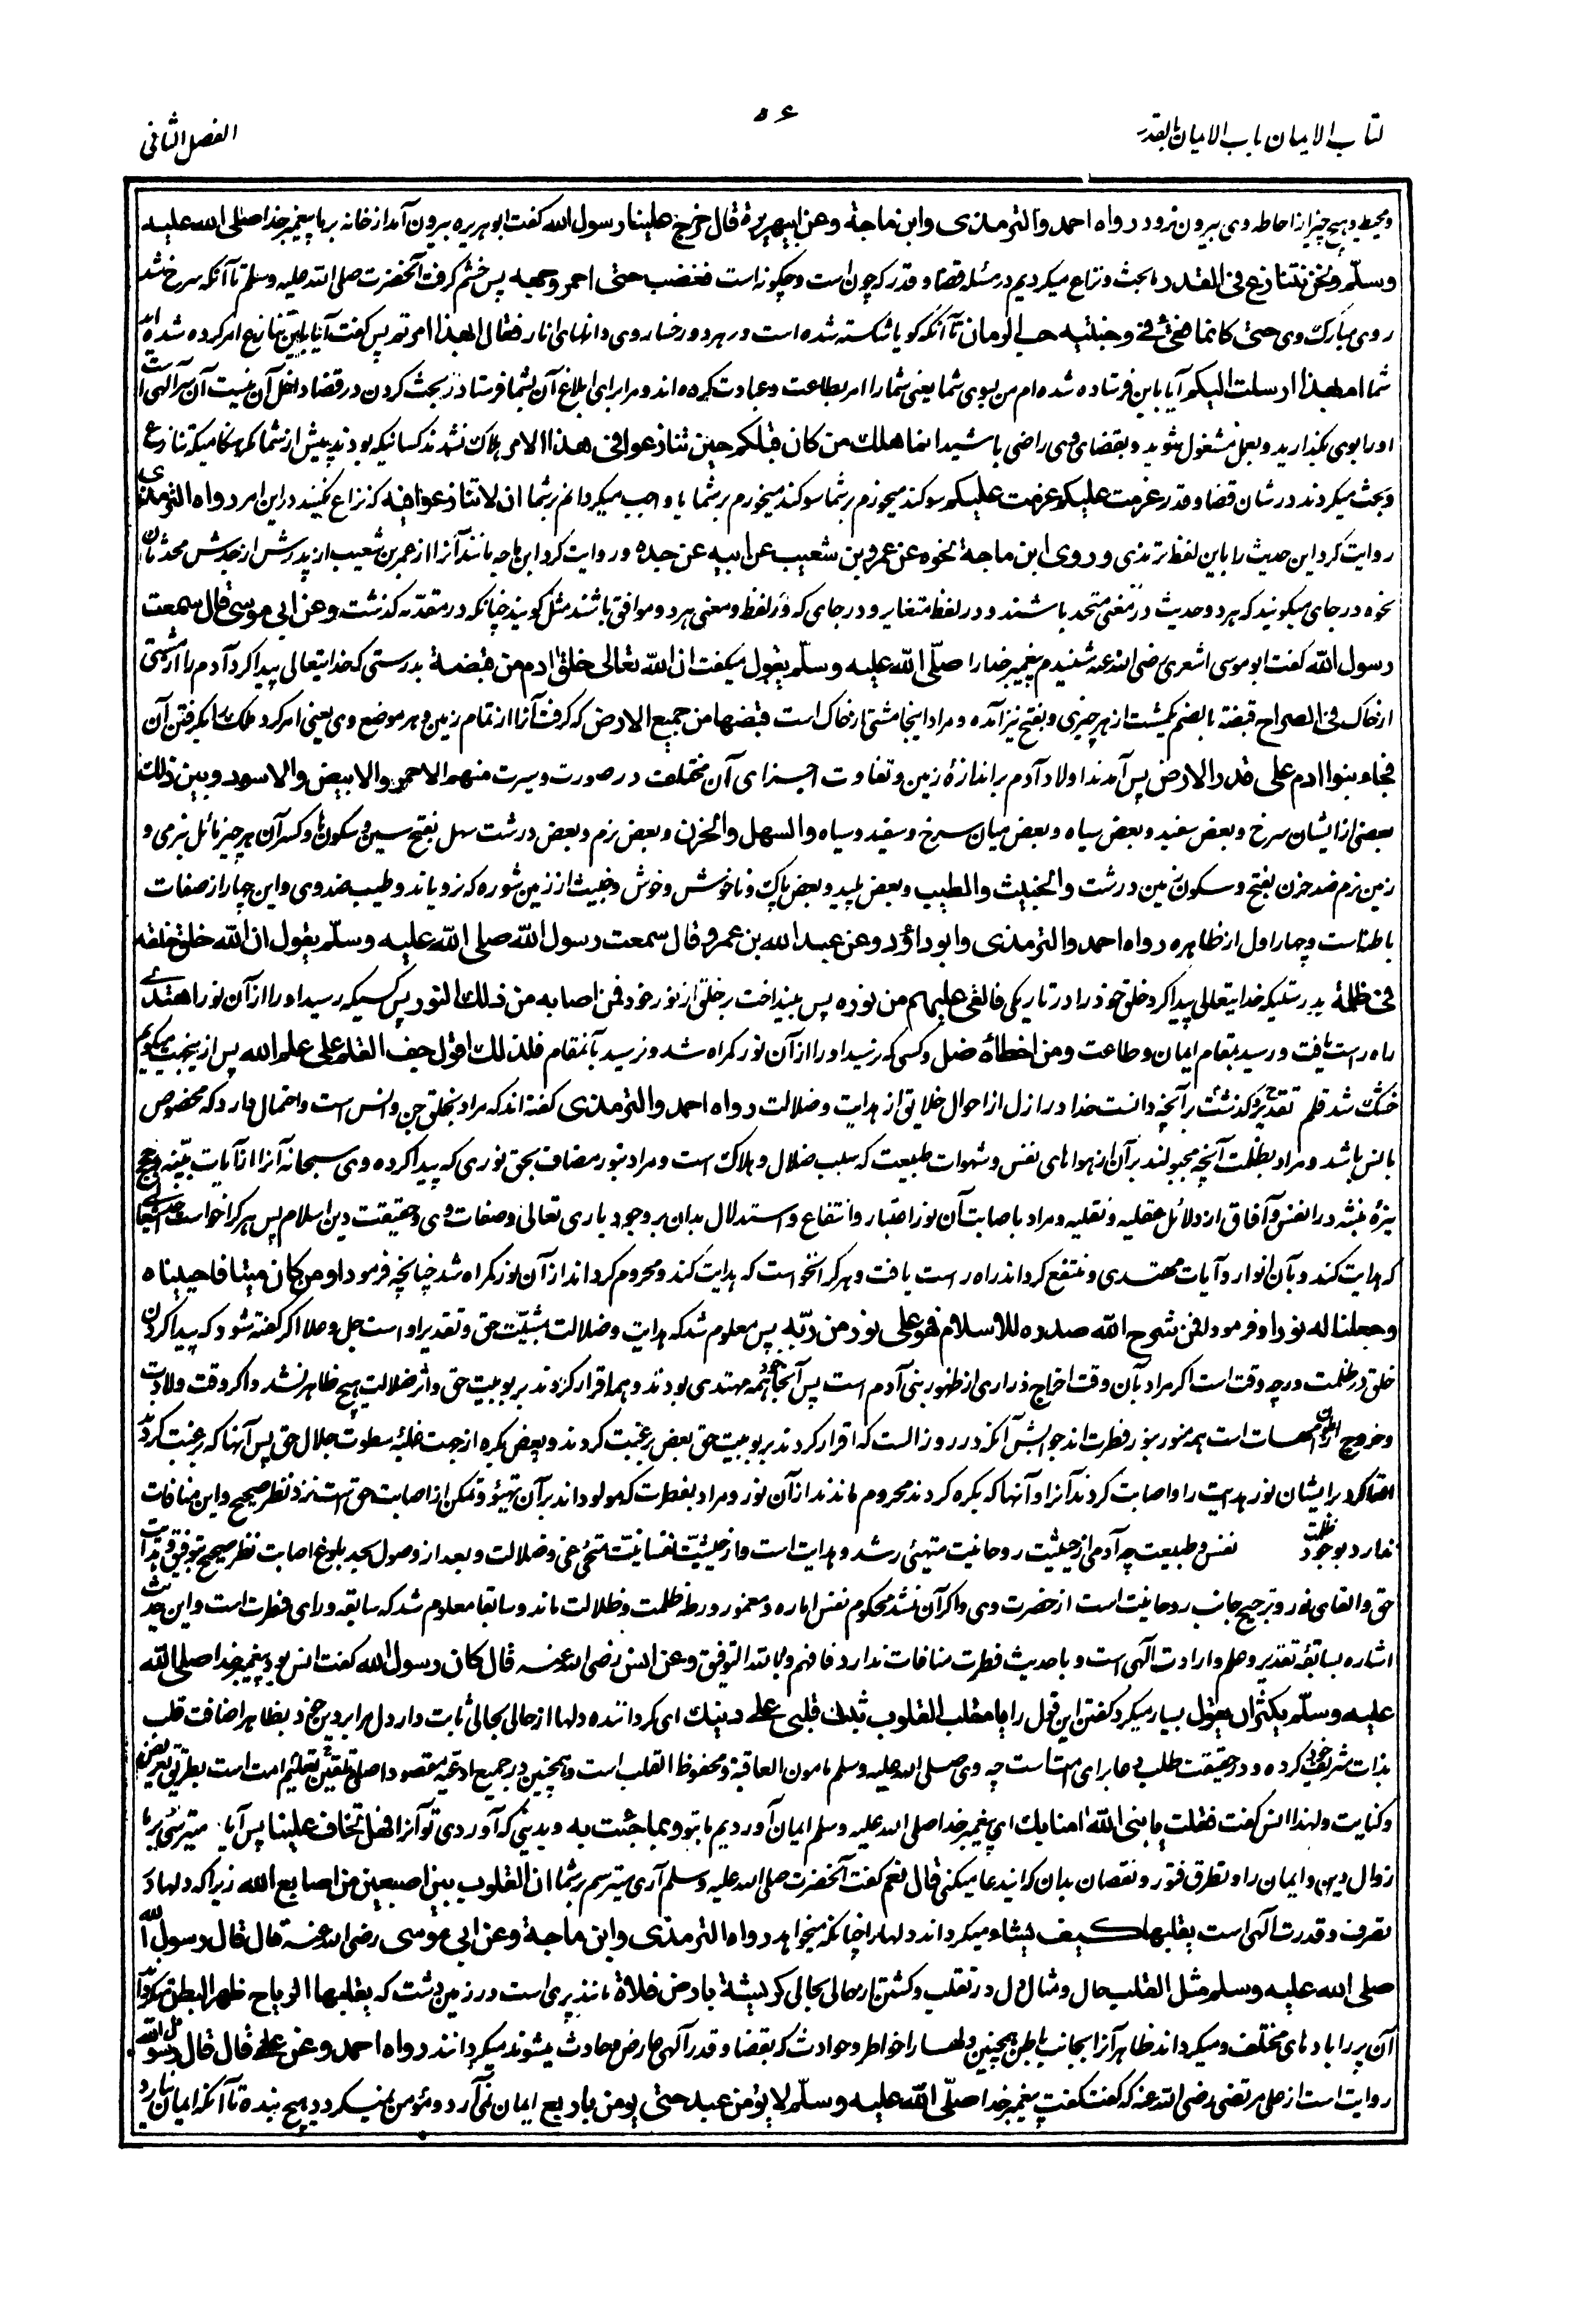 کتاب الایمان باب الایمان بالقدر
۵۶
الفصل الثانی
و محیط و هیچ چیز از احاطه وی بیرون نرود رواه احمد والترمذی وابن ماجة وعن ابی هریرة قال خرج علینا رسول الله گفت ابو هریره بیرون آمد از خانه بر ما پیغمبر خدا صلی الله علیه
وسلّم ونحن نتنازع فی القدر ما بحث و نزاع میکردیم در مسئله قضا و قدر که چون است و چگونه است فغضب حتی احمر وجهه پس خشم گرفت آنحضرت صلی الله علیه وسلم تا آنکه سرخ شد
روی مبارک وی حتی کانما فقئ فی وجنتیه حب الرمان تا آنکه گویا شکسته شده است در هر دو رخساروی دانهای انار فقال ابهذا امرتم پس گفت آیا باین تنازع امر کرده شده اید
شما ام بهذا ارسلت الیکم آیا باین فرستاده شده ام من بسوی شما یعنی شما را امر بطاعت و عبادت کرده اند و مرا برای ابلاغ آن بشما فرستاد ند بحث کردن در قضا داخل آن نیست آن سر الهی است
او را بوی بگذارید و بعمل مشغول شوید و بقضای وی راضی باشید انما هلك من كان قبلكم حین تنازعوا فی هذا الامر هلاک نشدند کسانیکه بودند پیش از شما مگر هنگامیکه تنازع
و بحث میکردند در شان قضا و قدر عزمت علیکم عزمت علیکم سوگند میخورم بر شما سوگند میخورم بر شما یا واجب میگردانم بر شما ان لا تنازعوا فیه که نزاع نکنید در این امر رواه الترمذی
روایت کرد این حدیث را باین لفظ ترمذی وروی ابن ماجة نحوه عن عمرو بن شعیب عن ابیه عن جده و روایت کرد ابن ماجه مانند آنرا از عمرو بن شعیب از پدرش از جدش محدثان
نحوه در جای میگویند که هر دو حدیث در معنی متحد باشند و در لفظ متغایر و در جای که در لفظ و معنی هر دو موافق باشند مثل گویند چنانکه در مقدمه گذشت وعن ابی موسی قال سمعت
رسول الله گفت ابو موسی اشعری رضی الله عنه شنیدم پیغمبر خدا را صلّی الله علیه وسلّم یقول میگفت ان الله تعالی خلق ادم من قبضة بدرستی که خدا یتعالی پیدا کرد آدم را از مشتی
از خاک فی الصراح قبضة بالضم یکمشت از هر چیزی و بفتح نیز آمده و مراد اینجا مشتی از خاک است قبضها من جمیع الارض که گرفت آنرا از تمام زمین و هر موضع وی یعنی امر کرد ملک را بگرفتن آن
فجاء بنوا ادم علی قدر الارض پس آمدند اولاد آدم بر اندازهٔ زمین و تفاوت اجزای آن مختلف در صورت و سیرت منهم الاحمر والابیض والاسود وبین ذلك
بعضی از ایشان سرخ و بعض سفید و بعض سیاه و بعض میان سرخ و سفید و سیاه والسهل والحزن و بعض نرم و بعض درشت سهل بفتح سین و سکون ها و کسر آن هر چیز مائل بنرمی و
زمین نرم ضد حزن بفتح و سکون زمین درشت والخبیث والطیب و بعض پلید و بعض پاک و ناخوش و خوش و خبیث از زمین شوره که نرویاند و طیب ضد وی و این چهار از صفات
باطناست و چهار اول از ظاهره رواه احمد والترمذی وابو داؤد وعن عبد الله بن عمرو قال سمعت رسول الله صلی الله علیه وسلّم یقول ان الله خلق خلقه
فی ظلمة بدرستیکه خدا یتعالی پیدا کرد خلق خود را در تاریکی فالقی علیهم من نوره پس بینداخت بر خلق از نور خود فمن اصابه من ذلك النور پس کسیکه رسید او را از آن نور اهتدی
راه راست یافت و رسید بمقام ایمان و طاعت ومن اخطأه ضل و کسی که نرسید او را از آن نور گمراه شد و نرسید بآنمقام فلذلك اقول جف القلم علی علم الله پس از ینجهت میگویم
خشک شد قلم تقدیر و گذشت بر آنچه دانست خدا در ازل از احوال خلایق از هدایت و ضلالت رواه احمد والترمذی گفته اند که مراد بخلق جن و انس است و احتمال دارد که مخصوص
بانس باشد و مراد بظلمت آنچه مجبولند بر آن از هواهای نفس و شهوات طبیعت که سبب ضلال و هلاک است و مراد بنور مضاف بحق نوری که پیدا کرده وی سبحانه آنرا از آیات بیّنه و حجج
نیّره مبثه در انفس و آفاق از دلائل عقلیه و نقلیه و مراد باصابت آن نور اعتبار و انتفاع و استدلال بدان بر وجود باری تعالی و صفات وی و حقیقت دین اسلام پس هر کرا خواست خدایتعالی
که هدایت کند و بآن انوار و آیات مهتدی و منتفع گرداند راه راست یافت و هر کرا نخواست که هدایت کند و محروم گرداند از آن نور گمراه شد چنانچه فرمود اومن كان میتا فاحییناه
وجعلنا له نورا و فرمود افمن شرح الله صدره للاسلام فهو علی نور من ربّه پس معلوم شد که هدایت و ضلالت بمشیّت حق و تقدیر او است جل و علا اگر گفته شود که پیدا کردن
خلق در ظلمت در چه وقت است اگر مراد بآن وقت اخراج ذراری از ظهور بنی آدم است پس آنجا خود همه مهتدی بودند و همه اقرار کردند بربوبیت حق و اثر ضلالت هیچ ظاهر نشد و اگر وقت ولادت
و خروج از بطون امهات است همه منور بنور فطرت اند جوابش آنکه در روز الست که اقرار کردند بربوبیت حق بعض برغبت کردند و بعض بکره از جهت غلبهٔ سطوت جلال حق پس آنها که برغبت کردند
القا کرد بر ایشان نور هدایت را و اصابت کردند آنرا و آنها که بکره کردند محروم ماندند از آن نور و مراد بفطرت که مولود اند بر آن تهیؤ و تمکن از اصابت حق است نزد نظر صحیح و این منافات
ندارد بوجود ظلمت نفس و طبیعت چه آدمی از حیثیت روحانیت متهیئ رشد و هدایت است و از حیثیّت نفسانیّت متهیئ غی و ضلالت و بعد از وصول بحد بلوغ اصابت نظر صحیح بتوفیق و هدایت
حق و القای نور و ترجیح جانب روحانیت است از حضرت وی و اگر آن نشد محکوم نفس اماره و مغمور ورطه ظلمت و ضلالت ماند و سابقا معلوم شد که سابقه ورای فطرت است و این حدیث
اشاره بسابقهٔ تقدیر و علم و ارادت الهی است و با حدیث فطرت منافات ندارد فافهم و بالله التوفیق وعن انس رضی الله عنه قال كان رسول الله گفت انس بود پیغمبر خدا صلی الله
علیه وسلّم یكثر ان یقول بسیار میکرد گفتن این قول را یا مقلب القلوب ثبت قلبی علی دینك ای گرداننده دلها از حالی بحالی ثابت دار دل مرا بر دین خود بظاهر اضافت قلب
بذات شریف خود کرده و در حقیقت طلب دعا برای امت است چه وی صلی الله علیه وسلم مامون العاقبة و محفوظ القلب است و همچنین در جمیع ادعیه مقصود اصلی تلقین و تعلیم امت است بطریق تعریض
و کنایت و لهذا انس گفت فقلت یا نبی الله امنا بك ای پیغمبر خدا صلی الله علیه وسلم ایمان آوردیم ما بتو وبما جئت به و بدینی که آوردی تو آنرا فهل تخاف علینا پس آیا میترسی بر ما
زوال دین و ایمان را و تطرق فتور و نقصان بدان که اینچنین دعا میکنی قال نعم گفت آنحضرت صلی الله علیه وسلم آری میترسم بر شما ان القلوب بین اصبعین من اصابع الله زیرا که دلها در
تصرف و قدرت الهی است یقلبها كیف یشاء میگرداند دلها را چنانکه میخواهد رواه الترمذی وابن ماجة وعن ابی موسی رضی الله عنه قال قال رسول الله
صلی الله علیه وسلم مثل القلب حال و مثال دل در تقلب و گشتن از حالی بحالی كریشة بارض فلاة مانند پری است در زمین دشت که یقلبها الریاح ظهرا لبطن میگرداند
آن پر را بادهای مختلف و میگرداند ظاهر آنرا بجانب باطن همچنین دلها را خواطر و حوادث که بقضا و قدر الهی عارض و حادث میشوند میگردانند رواه احمد وعن علی قال قال رسول الله
روایت است از علی مرتضی رضی الله عنه که گفت گفت پیغمبر خدا صلّی الله علیه وسلّم لا یؤمن عبد حتی یومن باربع ایمان نمی آرد و مؤمن نمیگردد هیچ بنده تا آنکه ایمان بیارد